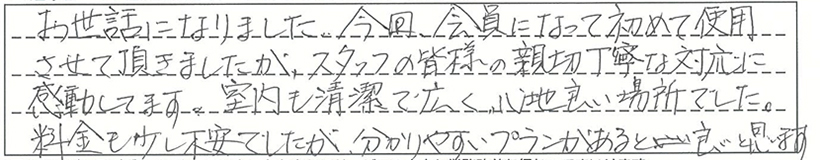 お世話になりました。今回、会員になって初めて使用
させて頂きましたが、スタッフの皆様の親切丁寧な対応に
感動してます。室内も清潔で広く、心地良い場所でした。
料金も少し不安でしたが、分かりやすいプランがあると良いと思います